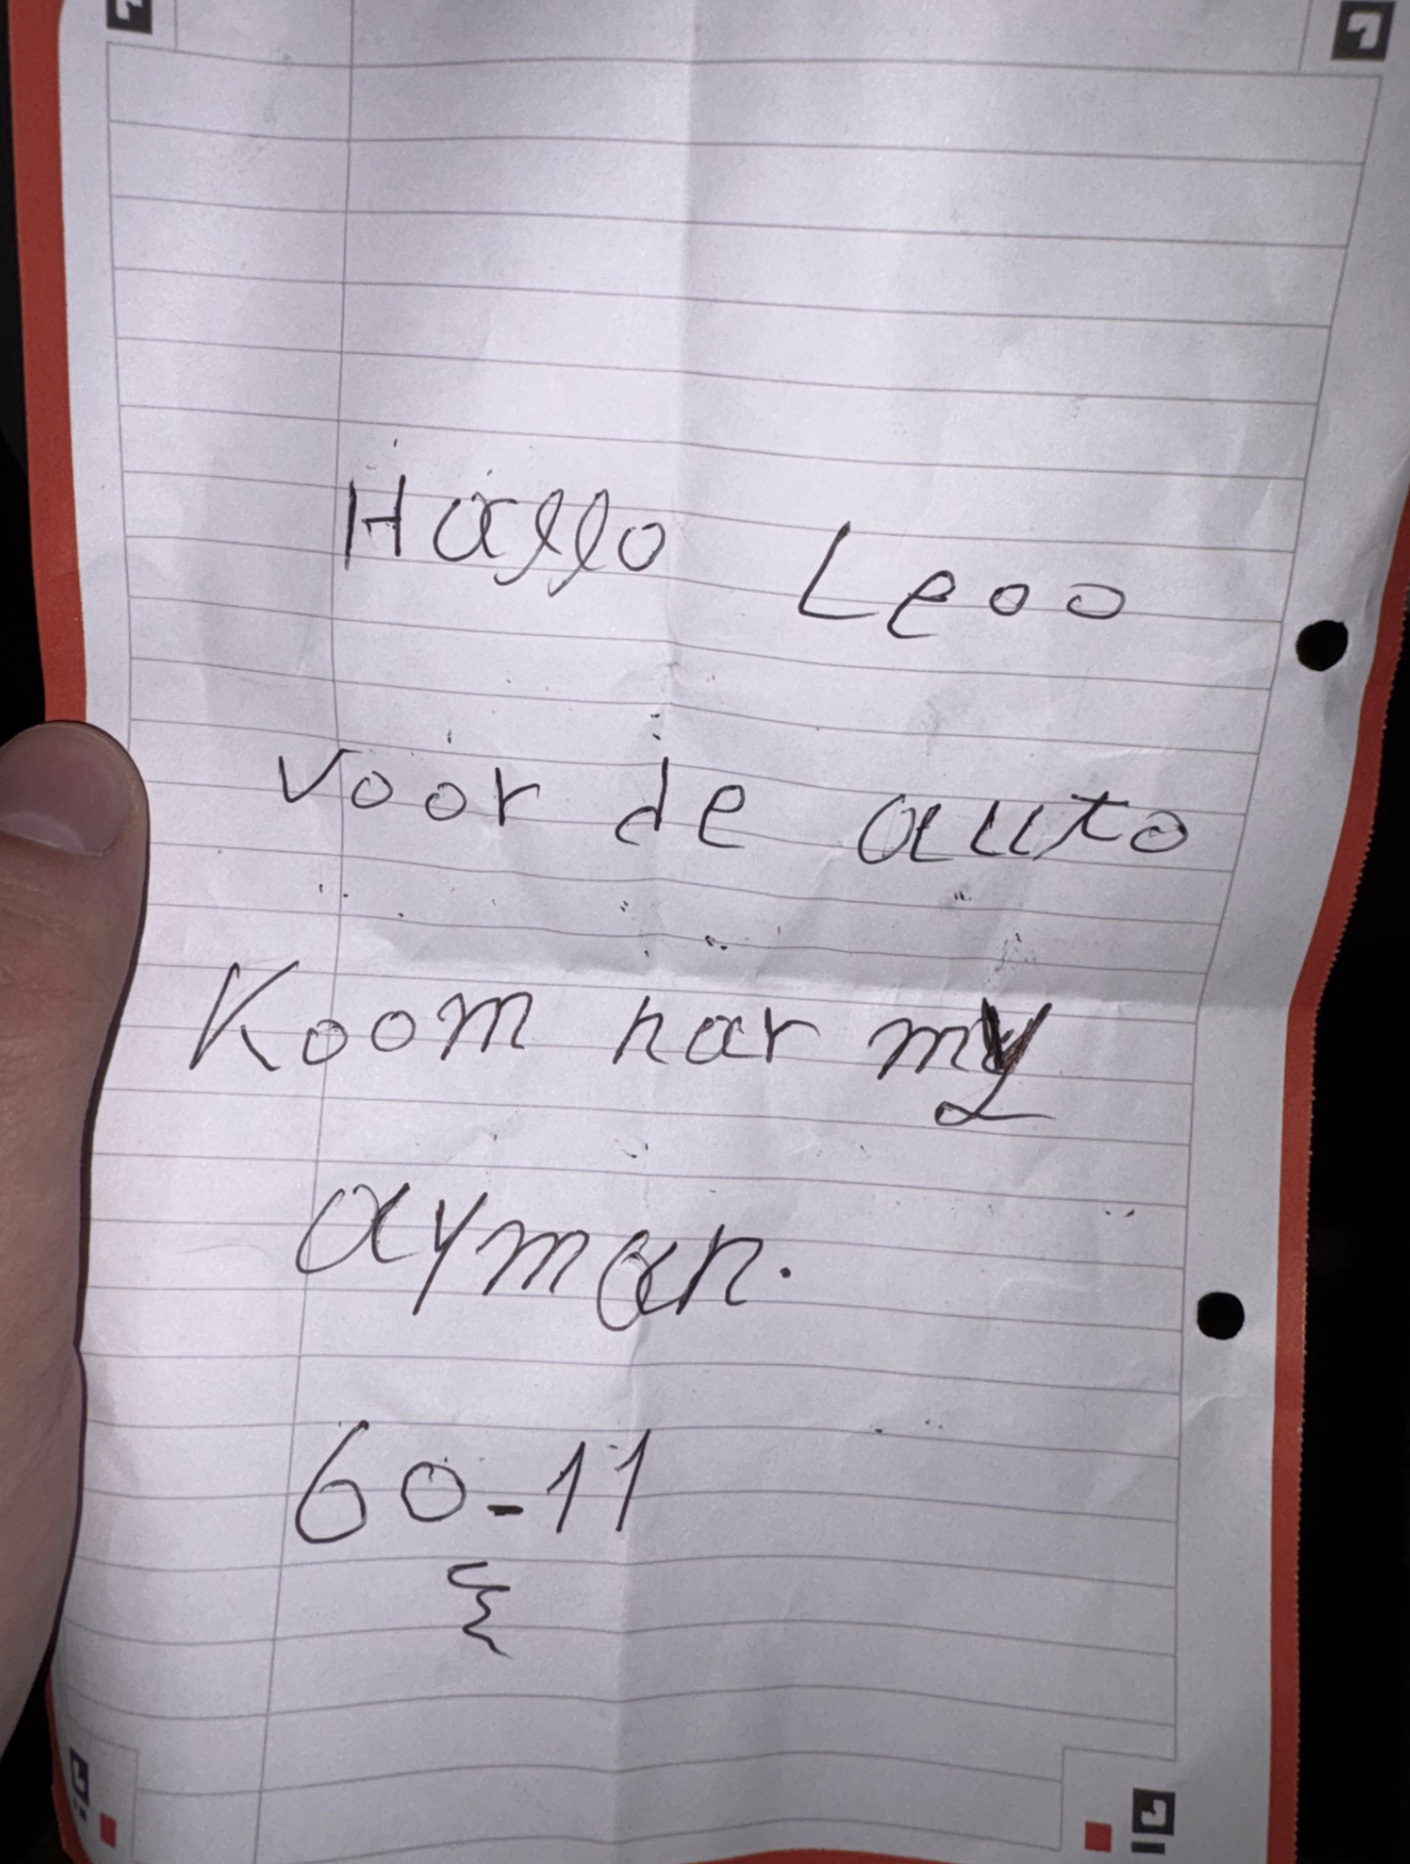 Hallo Leoo
voor de auto
Koom nar my
ayman.
60-11